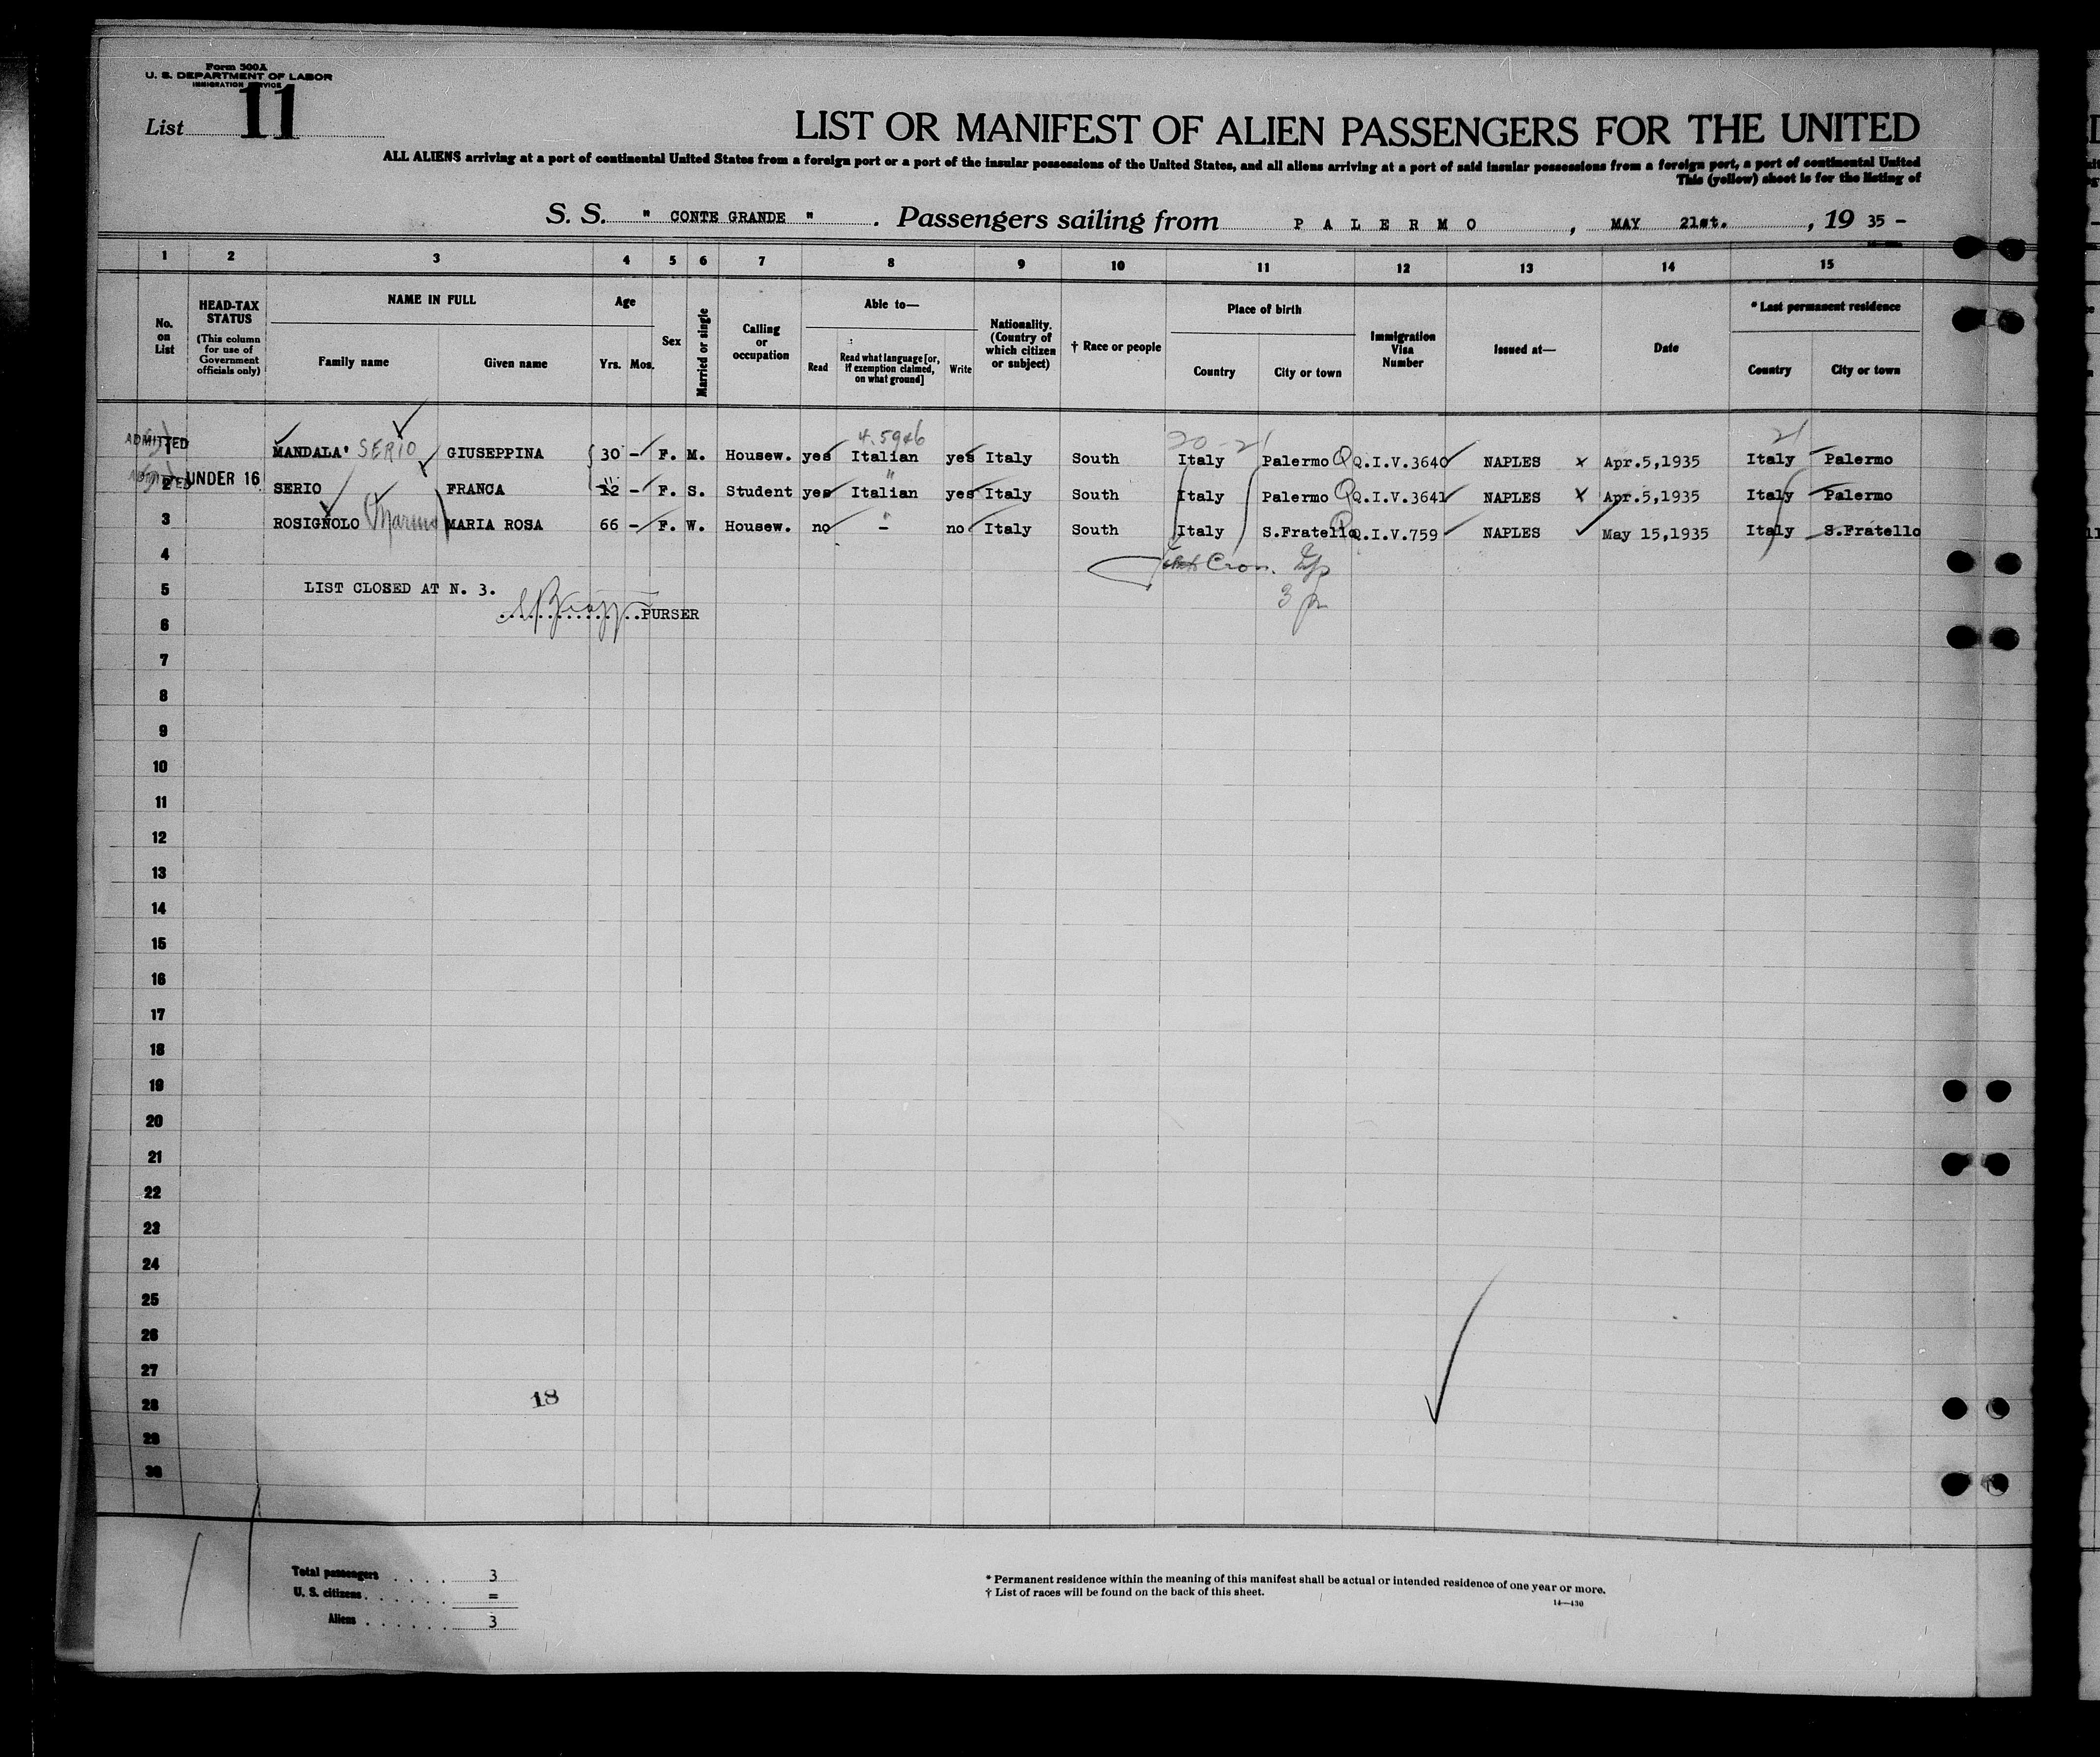 Form 500A
U. S. DEPARTMENT OF LABOR
IMMIGRATION SERVICE
List 11
LIST OR MANIFEST OF ALIEN PASSENGERS FOR THE UNITED
ALL ALIENS arriving at a port of continental United States from a foreign port or a port of the insular possessions of the United States, and all aliens arriving at a port of said insular possessions from a foreign port, a port of continental United
This (yellow) sheet is for the listing of
S. S. " CONTE GRANDE ". Passengers sailing from P A L E R M O , MAY 21st. , 19 35 -
1 2 3 4 5 6 7 8 9 10 11 12 13 14 15
No. on List
HEAD-TAX STATUS
(This column for use of Government officials only)
NAME IN FULL
Family name Given name
Age
Yrs. Mos.
Sex
Married or single
Calling or occupation
Able to—
Read
Read what language [or, if exemption claimed, on what ground]
Write
Nationality. (Country of which citizen or subject)
† Race or people
Place of birth
Country City or town
Immigration Visa Number
Issued at—
Date
* Last permanent residence
Country City or town
4.5946 20-21 21
ADMITTED 1 MANDALA' SERIO GIUSEPPINA 30 - F. M. Housew. yes Italian yes Italy South Italy Palermo Q.I.V.3640 NAPLES x Apr.5,1935 Italy Palermo
2 UNDER 16 SERIO FRANCA 12 - F. S. Student yes Italian yes Italy South Italy Palermo Q.I.V.3641 NAPLES x Apr.5,1935 Italy Palermo
3 ROSIGNOLO Marino MARIA ROSA 66 - F. W. Housew. no - no Italy South Italy S.Fratello Q.I.V.759 NAPLES May 15,1935 Italy S.Fratello
4
5 LIST CLOSED AT N. 3.
PURSER
6
7
8
9
10
11
12
13
14
15
16
17
18
19
20
21
22
23
24
25
26
27
28 18
29
30
Total passengers . . . . 3
U. S. citizens . . . . . . =
Aliens . . . . . . 3
* Permanent residence within the meaning of this manifest shall be actual or intended residence of one year or more.
† List of races will be found on the back of this sheet.
14—430